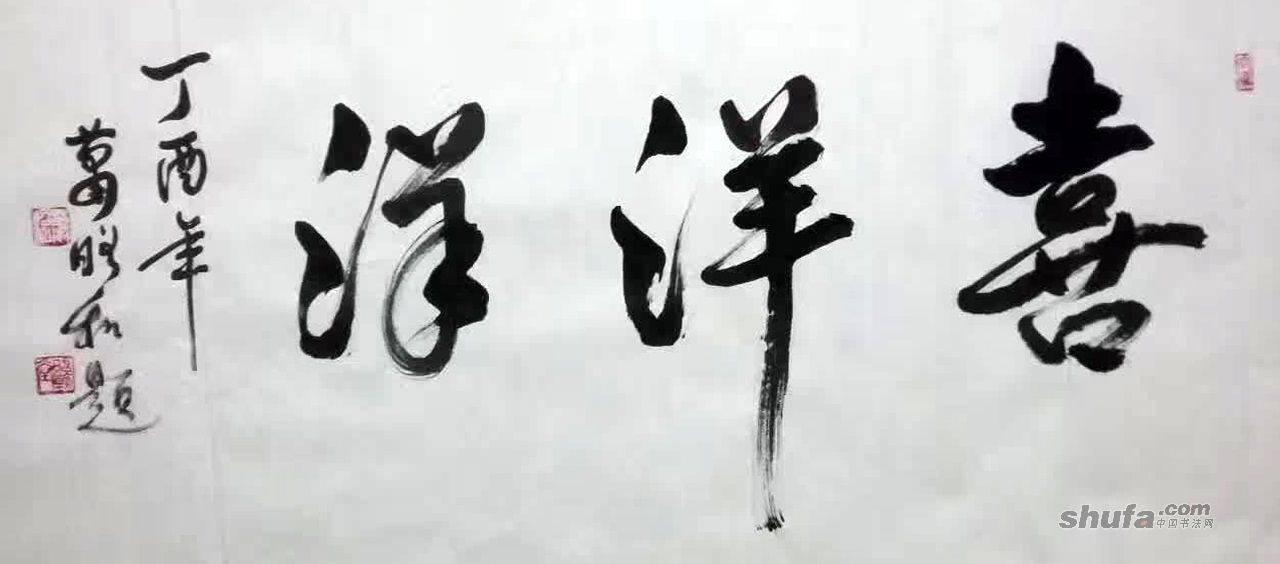 喜洋洋
丁酉年
葛昭和题
shufa.com
中国书法网